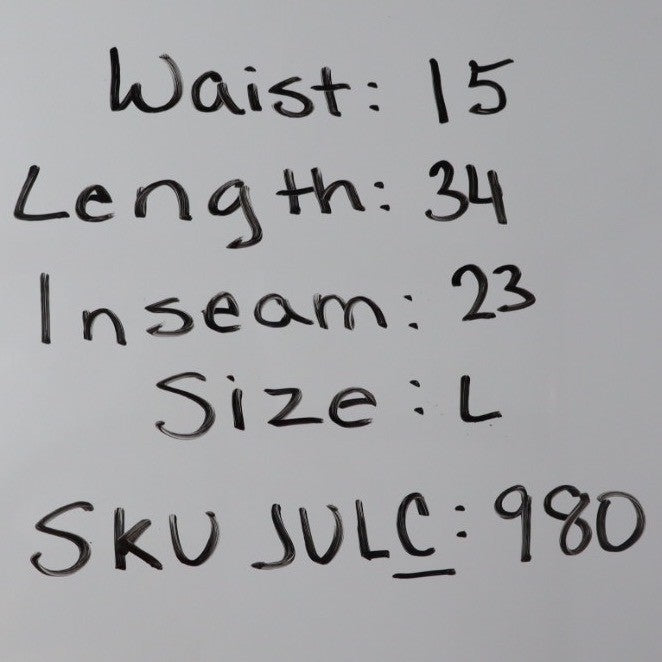 Waist: 15
Length: 34
Inseam: 23
Size: L
SKU JULC: 980